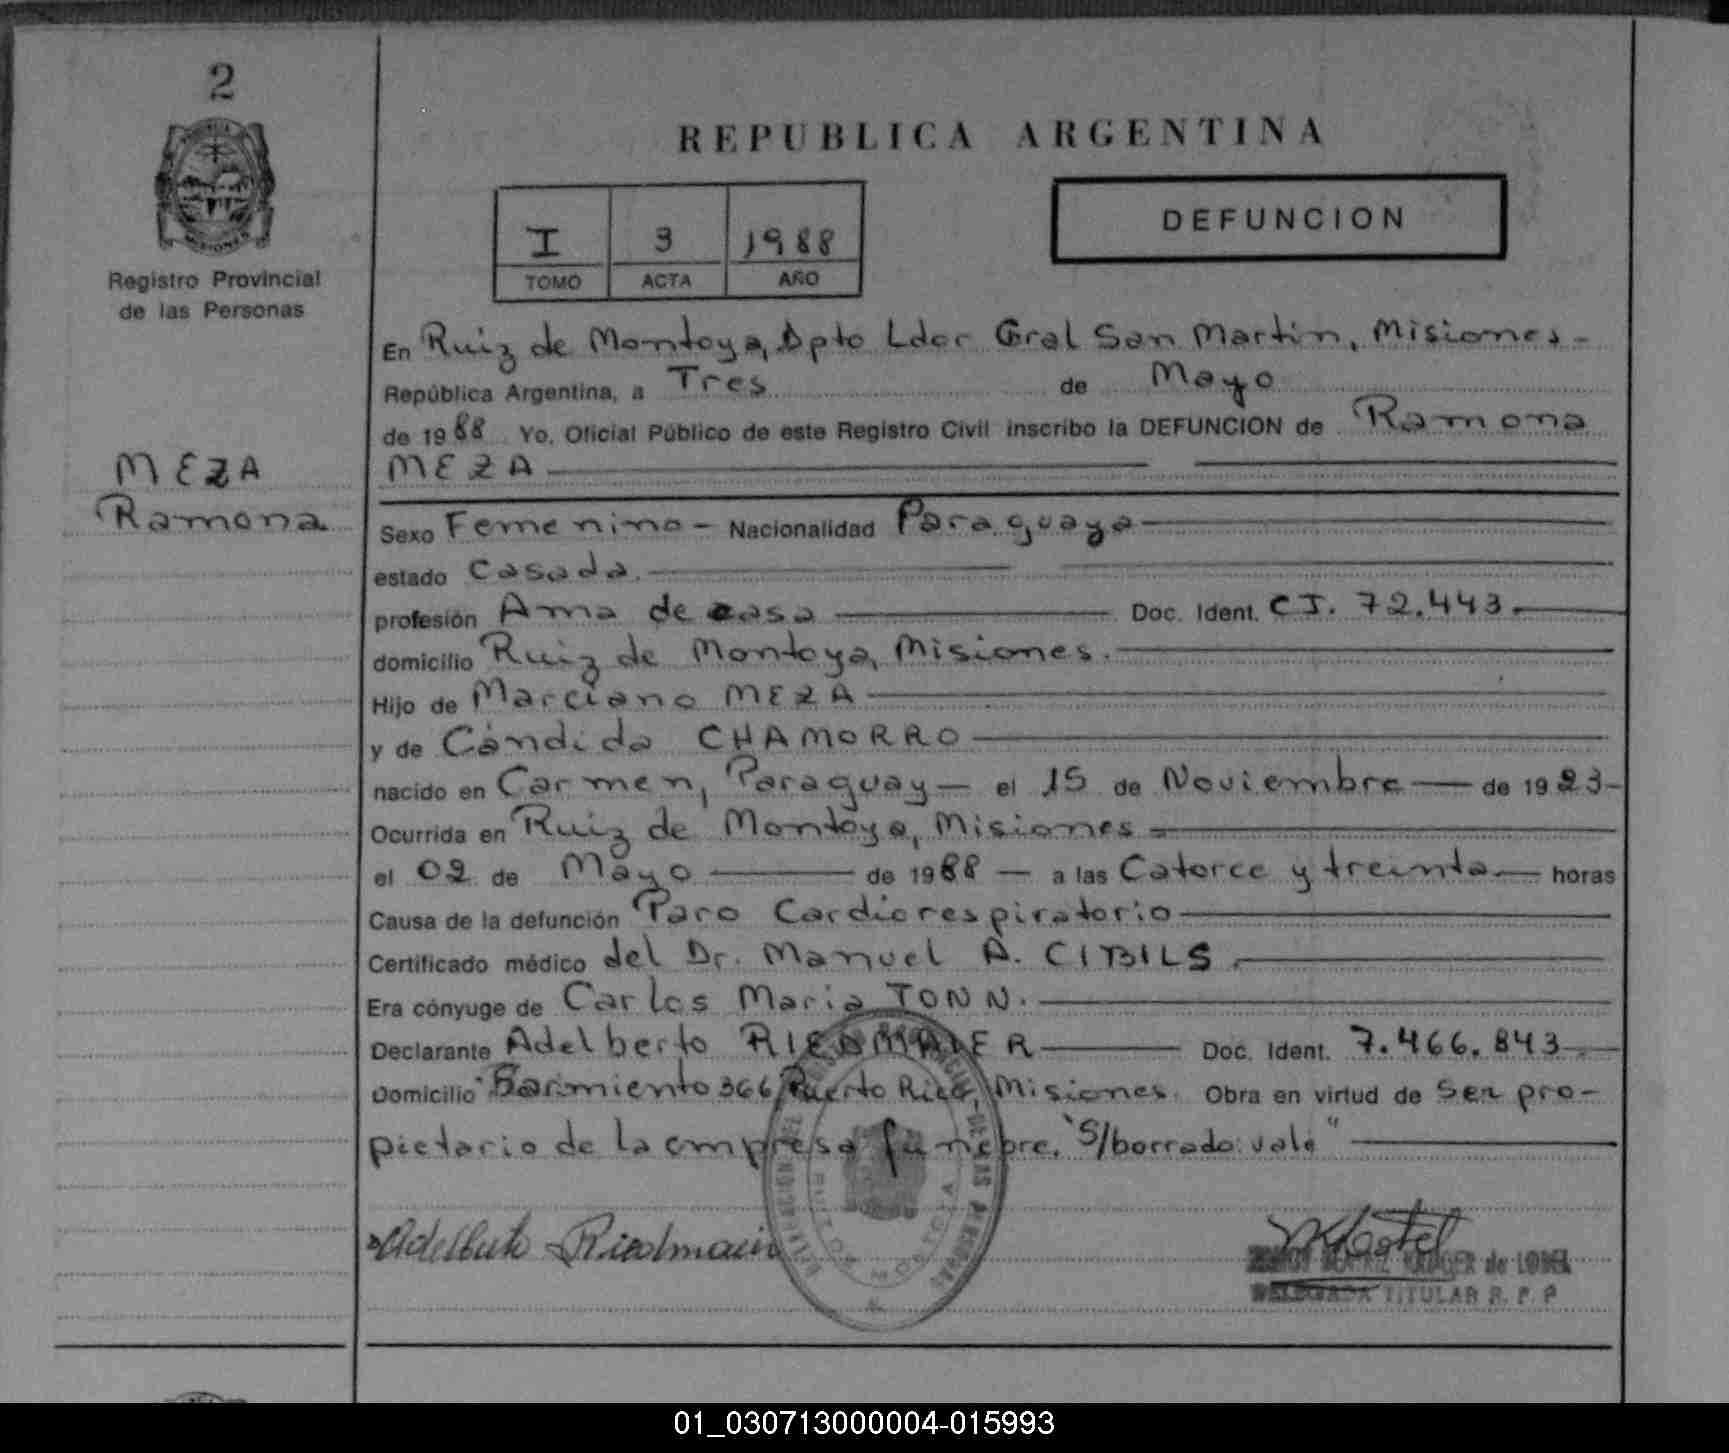 2
MISIONES
Registro Provincial
de las Personas
MEZA
Ramona
REPUBLICA ARGENTINA
I 3 1988
TOMO ACTA AÑO
DEFUNCION
En Ruiz de Montoya, Dpto Ldor Gral San Martín, Misiones-
República Argentina, a Tres de Mayo
de 1988 Yo, Oficial Público de este Registro Civil inscribo la DEFUNCION de Ramona
MEZA
Sexo Femenino - Nacionalidad Paraguaya
estado Casada.
profesión Ama de casa Doc. Ident. CI. 72.443.
domicilio Ruiz de Montoya, Misiones.
Hijo de Marciano MEZA
y de Cándida CHAMORRO
nacido en Carmen, Paraguay- el 15 de Noviembre - de 1923-
Ocurrida en Ruiz de Montoya, Misiones-
el 02 de Mayo de 1988 - a las Catorce y treinta - horas
Causa de la defunción Paro Cardiorespiratorio
Certificado médico del Dr. Manuel A. CIBILS.
Era cónyuge de Carlos Maria TONN.
Declarante Adelberto RIEDMAIER Doc. Ident. 7.466.843
Domicilio Sarmiento 366 Puerto Rico, Misiones. Obra en virtud de Ser pro-
pietario de la empresa fúnebre. "S/borrado: vale"
Adelberto Riedmaier
de LOBEL
DELEGADA TITULAR R. P. P
01_030713000004-015993